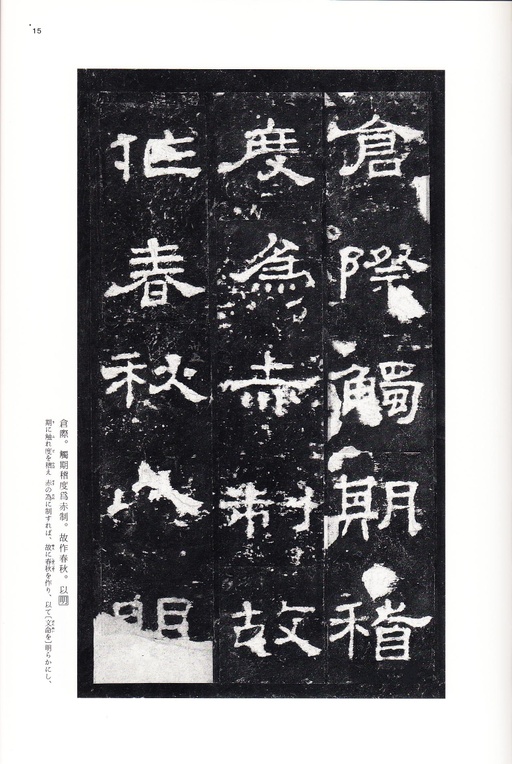 15
倉際觸期稽
度爲赤制故
作春秋以明
倉際。觸期稽度爲赤制。故作春秋。以明
期に触れ度を稽え 赤の為に制すれば、故に春秋を作り、以て〔文命を〕明らかにし、